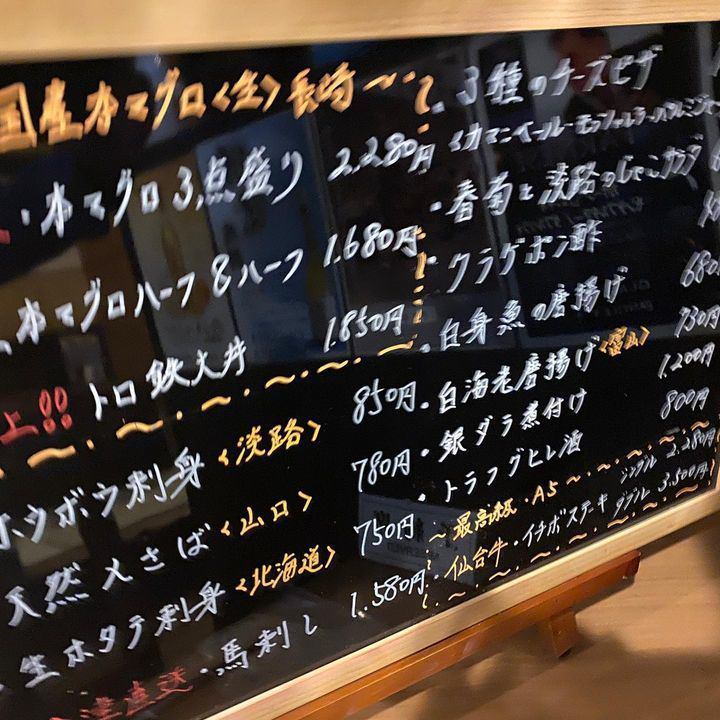 国産本マグロ<生>長崎
・本マグロ3点盛り 2,280円
本マグロハーフ&ハーフ 1.680円
上!! トロ鉄火丼 1.850円
ホウボウ刺身<淡路> 850円
天然〆さば<山口> 780円
生ホタテ刺身<北海道> 750円
直送・馬刺し 1.580円
・3種のチーズピザ
・春菊と淡路のじゃこサラダ
・クラゲポン酢
・白身魚の唐揚げ 680
・白海老唐揚げ<富山> 730円
・銀ダラ煮付け 1.200円
・トラフグヒレ酒 800円
〜最高級・A5〜
仙台牛・イチボステーキ シングル 2.280円
ダブル 3.500円